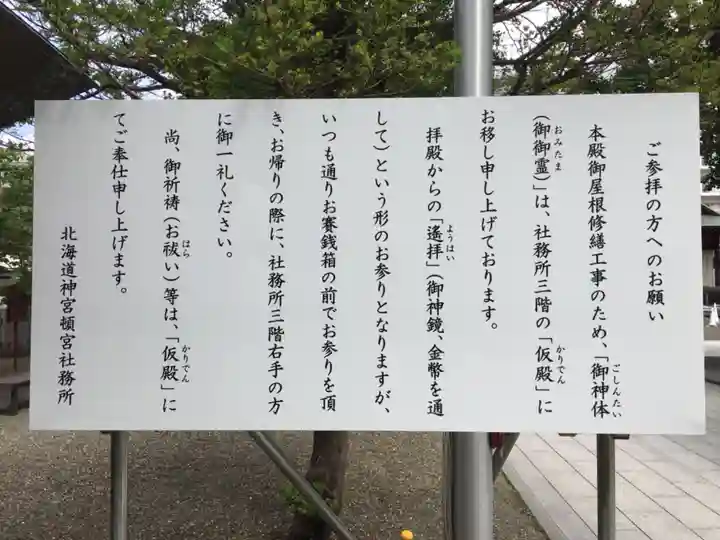 ご参拝の方へのお願い
本殿御屋根修繕工事のため、「御神体
（御御霊）」は、社務所三階の「仮殿」に
お移し申し上げております。
拝殿からの「遙拝」（御神鏡、金幣を通
して）という形のお参りとなりますが、
いつも通りお賽銭箱の前でお参りを頂
き、お帰りの際に、社務所三階右手の方
に御一礼ください。
尚、御祈祷（お祓い）等は、「仮殿」に
てご奉仕申し上げます。
北海道神宮頓宮社務所